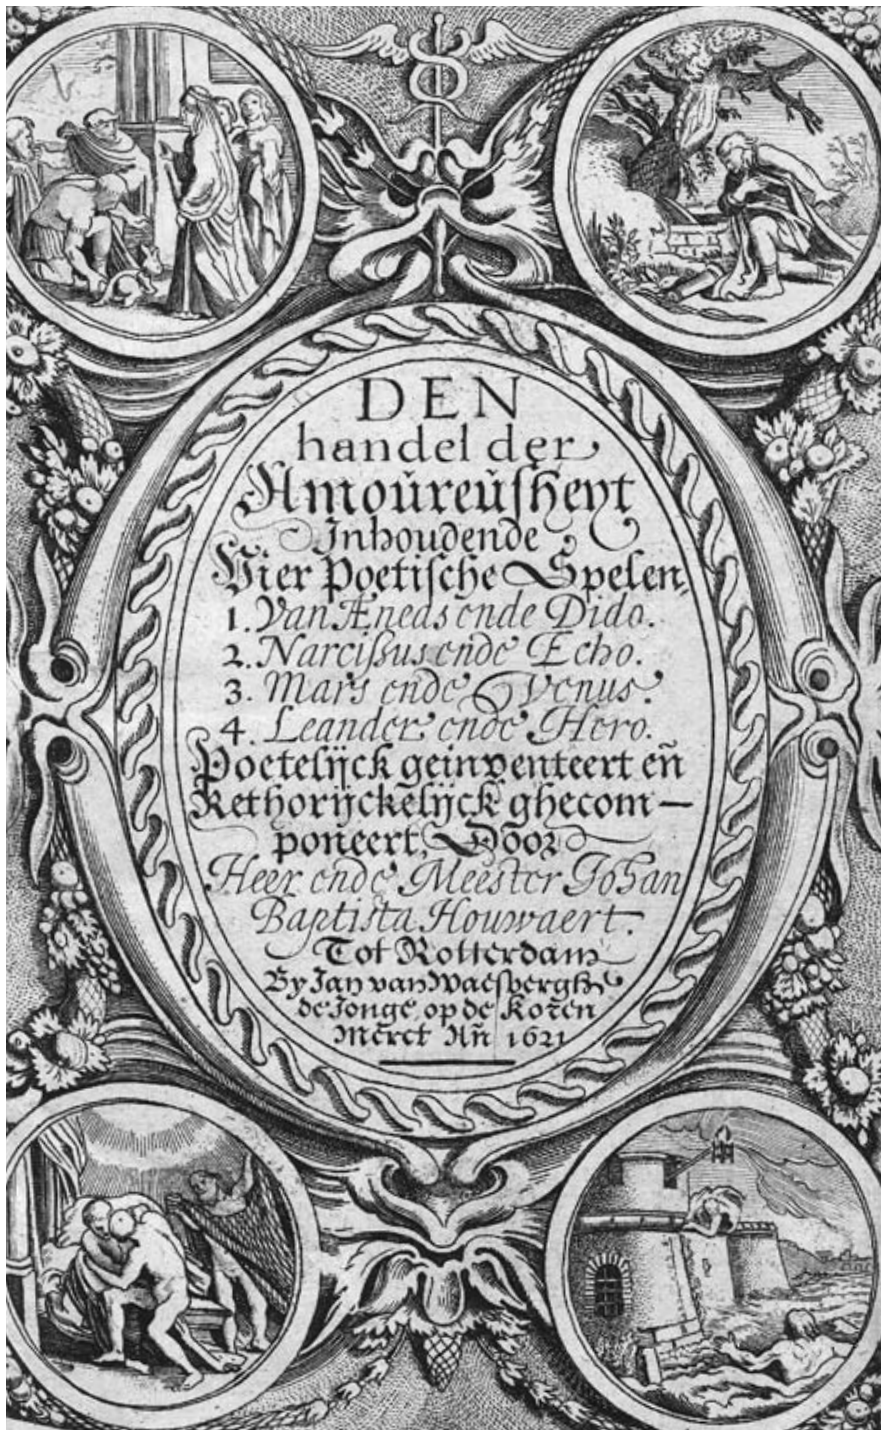 DEN
handel der
Amoůreůsheyt
Inhoudende
Vier Poetische Spelen,
1. Van Æneas ende Dido.
2. Narcißus ende Echo.
3. Mars ende Venus.
4. Leander ende Hero.
Poetelijck geinventeert en̄
Rethorijckelijck ghecom-
poneert, Door
Heer ende Meester Johan
Baptista Houwaert.
Tot Rotterdam
By Jan van Waesbergh
de Jonge, op de Koren
Merct An̄ 1621